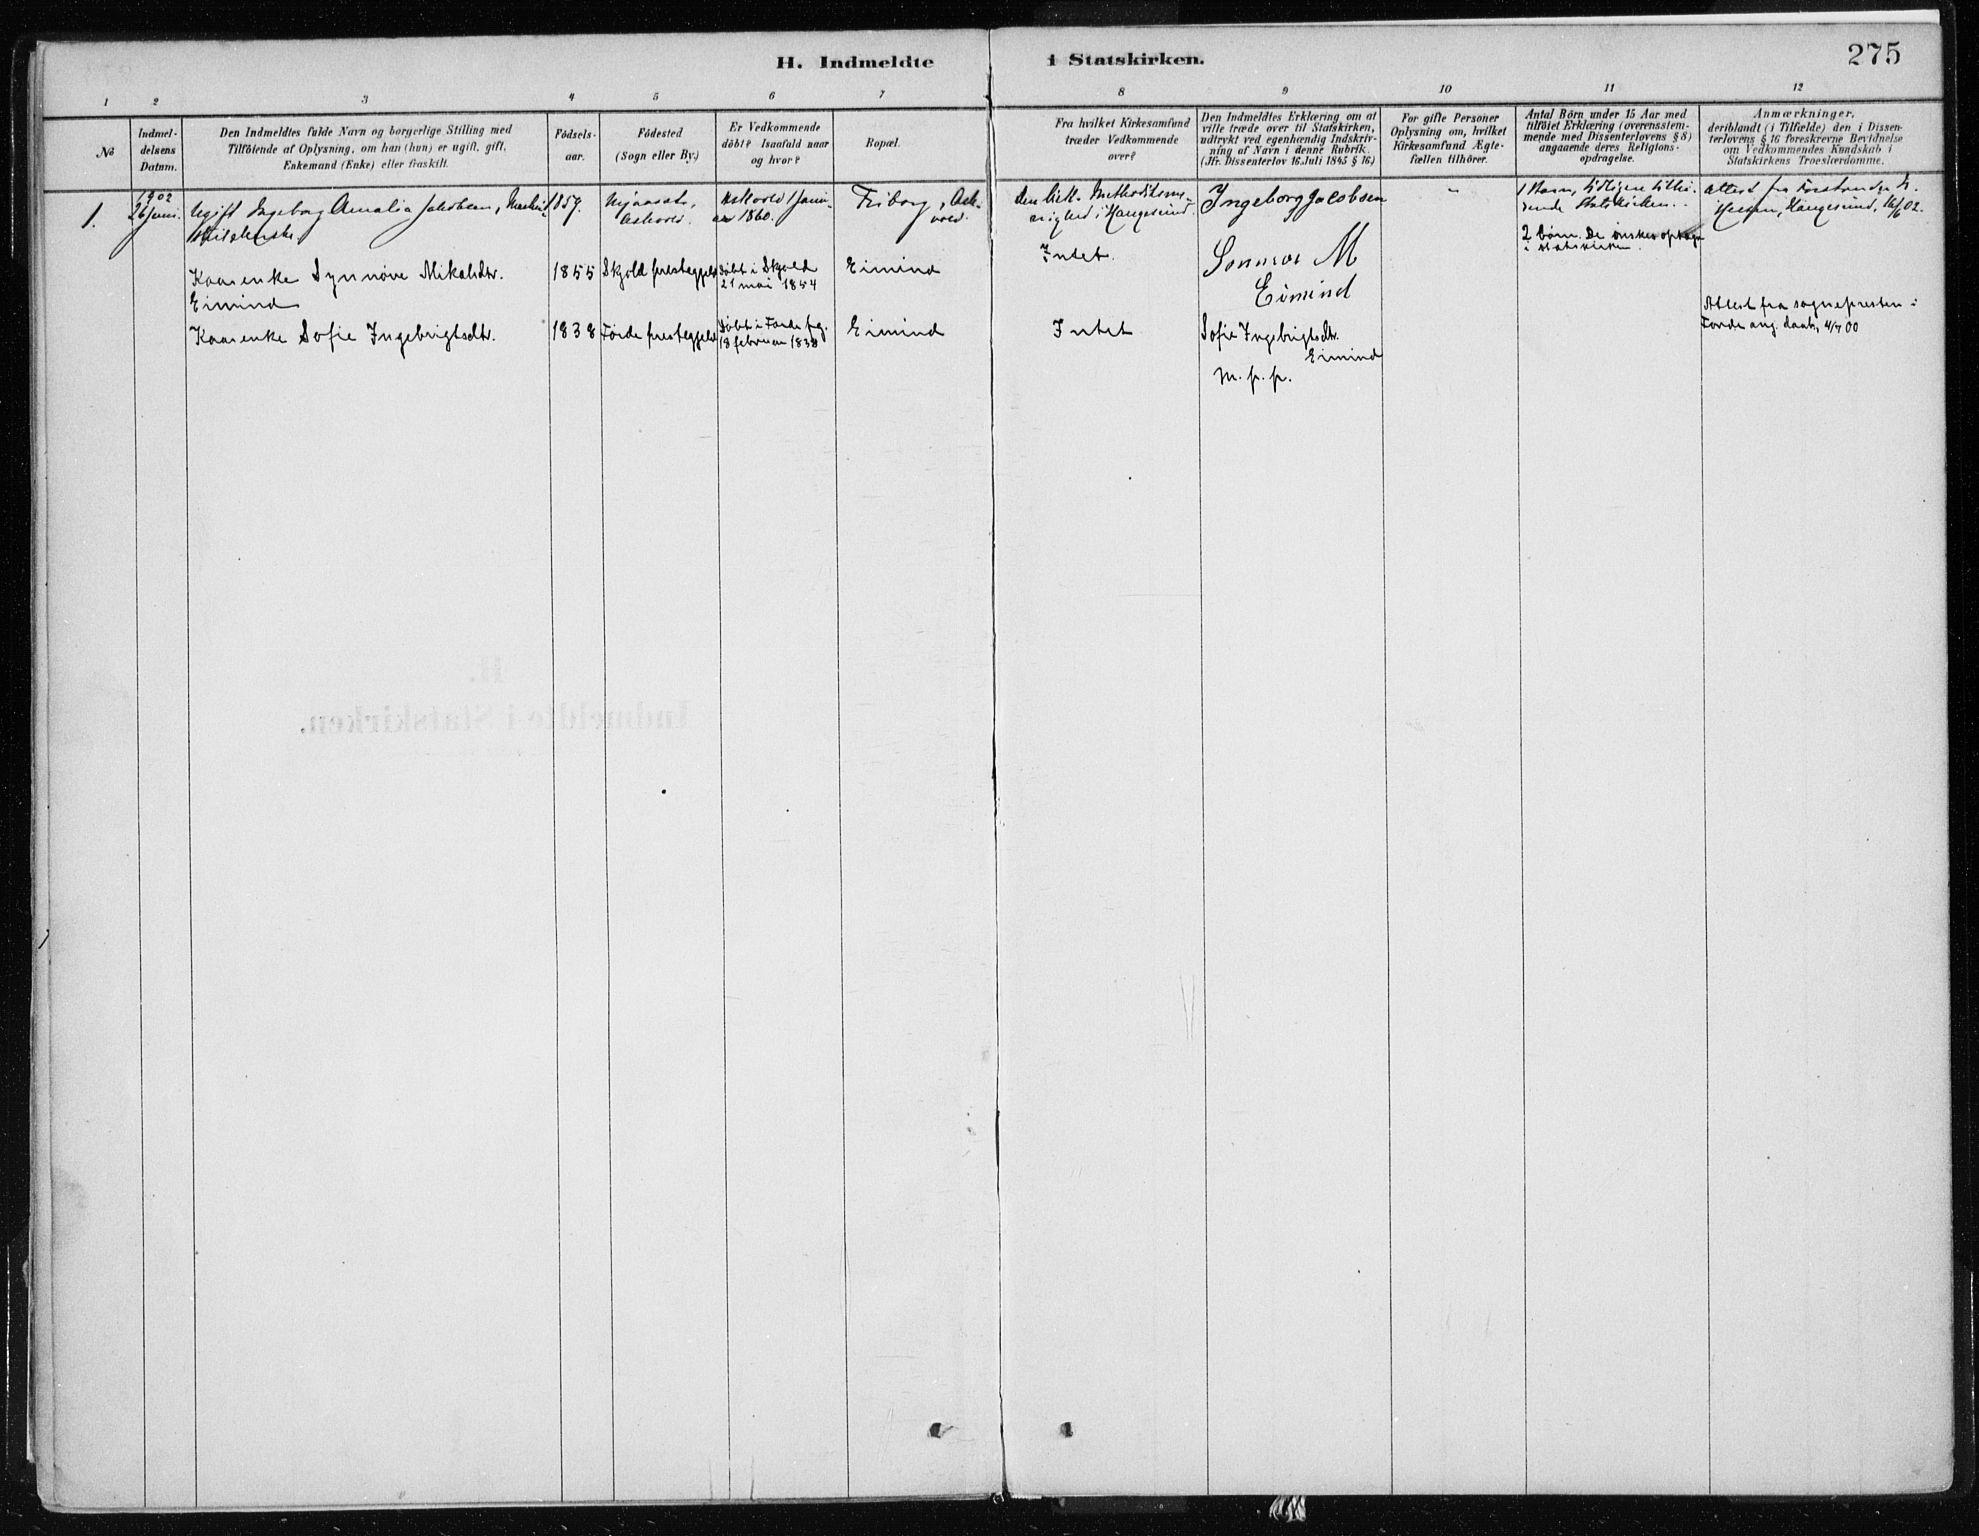 H. Indmeldte i Statskirken.
275
1 2 3 4 5 6 7 8 9 10 11 12
No
Indmel-
delsens
Datum.
Den Indmeldtes fulde Navn og borgerlige Stilling med
Tilföiende af Oplysning, om han (hun) er ugift, gift,
Enkemand (Enke) eller fraskilt.
Födsels-
aar.
Födested
(Sogn eller By.)
Er Vedkommende
döbt? Isaafald naar
og hvor?
Bopæl.
Fra hvilket Kirkesamfund
træder Vedkommende
over?
Den Indmeldtes Erklæring om at
ville træde over til Statskirken,
udtrykt ved egenhændig Indskriv-
ning af Navn i denne Rubrik.
(Jfr. Dissenterlov 16 Juli 1845 § 16.)
For gifte Personer
Oplysning om, hvilket
Kirkesamfund Ægte-
fællen tilhörer.
Antal Börn under 15 Aar med
tilföiet Erklæring (overensstem-
mende med Dissenterlovens § 8)
angaaende deres Religions-
opdragelse.
Anmærkninger,
deriblandt (i Tilfælde) den i Dissen-
terlovens § 16 foreskrevne Bevidnelse
om Vedkommendes Kundskab i
Statskirkens Troeslærdomme.
1.
1902
26 Juni.
Ugift Ingeborg Amalia Jakobsen,
1859.
Askvold.
Askvold 1 Janu-
ar 1860.
Friborg, Ask-
vold.
Den bisk. Methodistme-
nighed i Haugesund.
Ingeborg Jacobsen
"
1 Barn, tidligere tilhö-
rende Statskirken.
Attest fra Forstander
Haugesund, 16/6 02.
Kaarenke Synnöve Mikalsdtr.
Eimind
1855
Skjold prestegjeld
Döbt i Skjold
21 mai 1854
Eimind
Intet.
M
Eimind
2 börn. De önskes optagne
i statskirken.
Kaarenke Sofie Ingebrigtsdtr.
1838
Förde prestegjeld
Döbt i Förde
18 februar 1838
Eimind
Intet
Sofie Ingebrigtsdtr.
Eimind
m. p. p.
Attest fra sognepresten i
Förde ang. daab, 4/7 00
H.
Indmeldte i Statskirken.